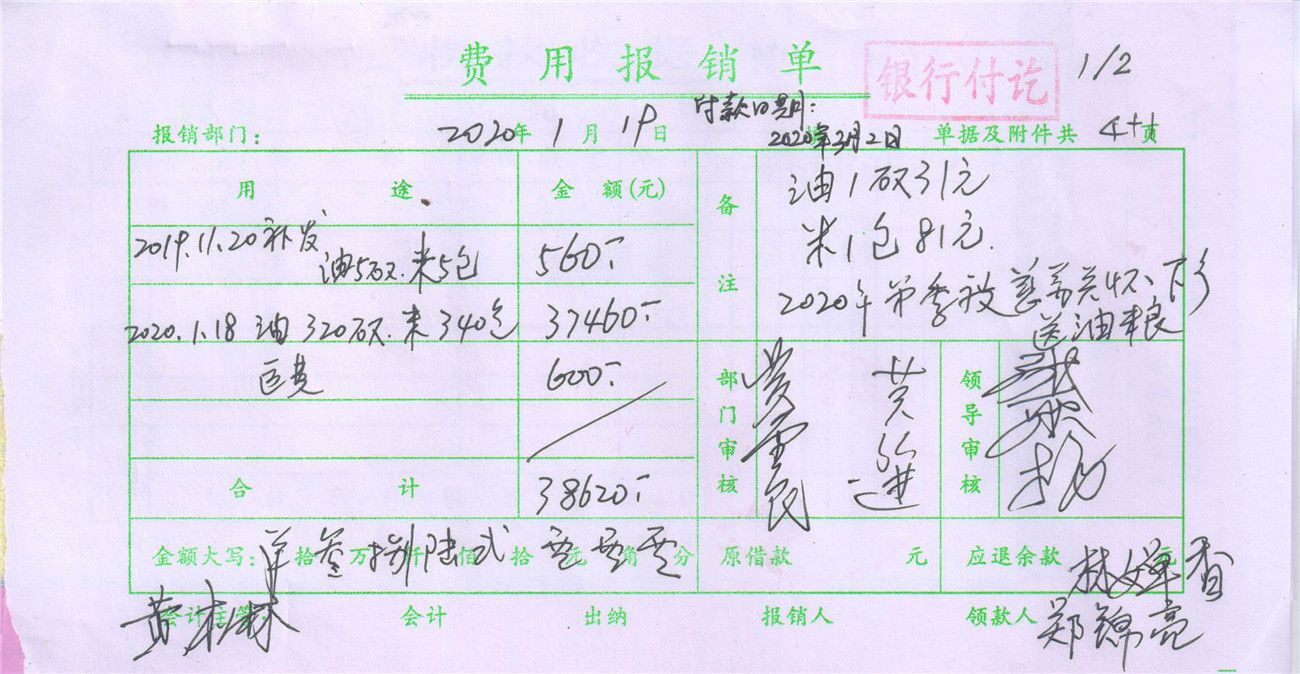 费用报销单 银行付讫 1/2
付款日期：
报销部门： 2020年 1月 19日 2020年3月2日 单据及附件共 4十页
用途 金额(元) 备注 油1砇31元
米1包81元.
2019.11.20补发
油5砇.米5包 560.-
2020年第季被慈善关怀下乡
送油粮
2020.1.18 油320砇.米340包 37460.-
600.-
部门审核 领导审核
合计 38620.-
金额大写： 拾 叁 万 捌 仟 陆 佰 贰 拾 零 元 零 角 零 分 原借款 元 应退余款 元
林婵香
黄树林 会计主管 会计 出纳 报销人 领款人 郑锦亮